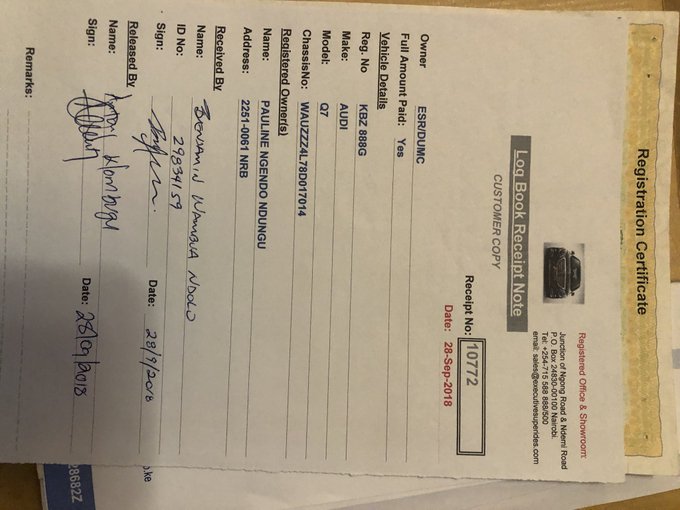 Registration Certificate
Registered Office & Showroom:
Junction of Ngong Road & Ndemi Road
P.O. Box 24830-00100 Nairobi.
Tel: +254-715 588 888/500
email: sales@executivesuperides.com
Log Book Receipt Note
CUSTOMER COPY
Receipt No: 10772
Date: 28-Sep-2018
Owner ESR/DUMC
Full Amount Paid: Yes
Vehicle Details
Reg. No KBZ 888G
Make: AUDI
Model: Q7
ChassisNo: WAUZZZ4L78D017014
Registered Owner(s)
Name: PAULINE NGENDO NDUNGU
Address: 2251-0061 NRB
Received By
Name: BENJAMIN WAMBUA NDOLO
ID No: 29834159
Sign: Date: 28/9/2018
Released By
Name:
Sign: Date: 28/09/2018
Remarks:
o.ke
28682Z